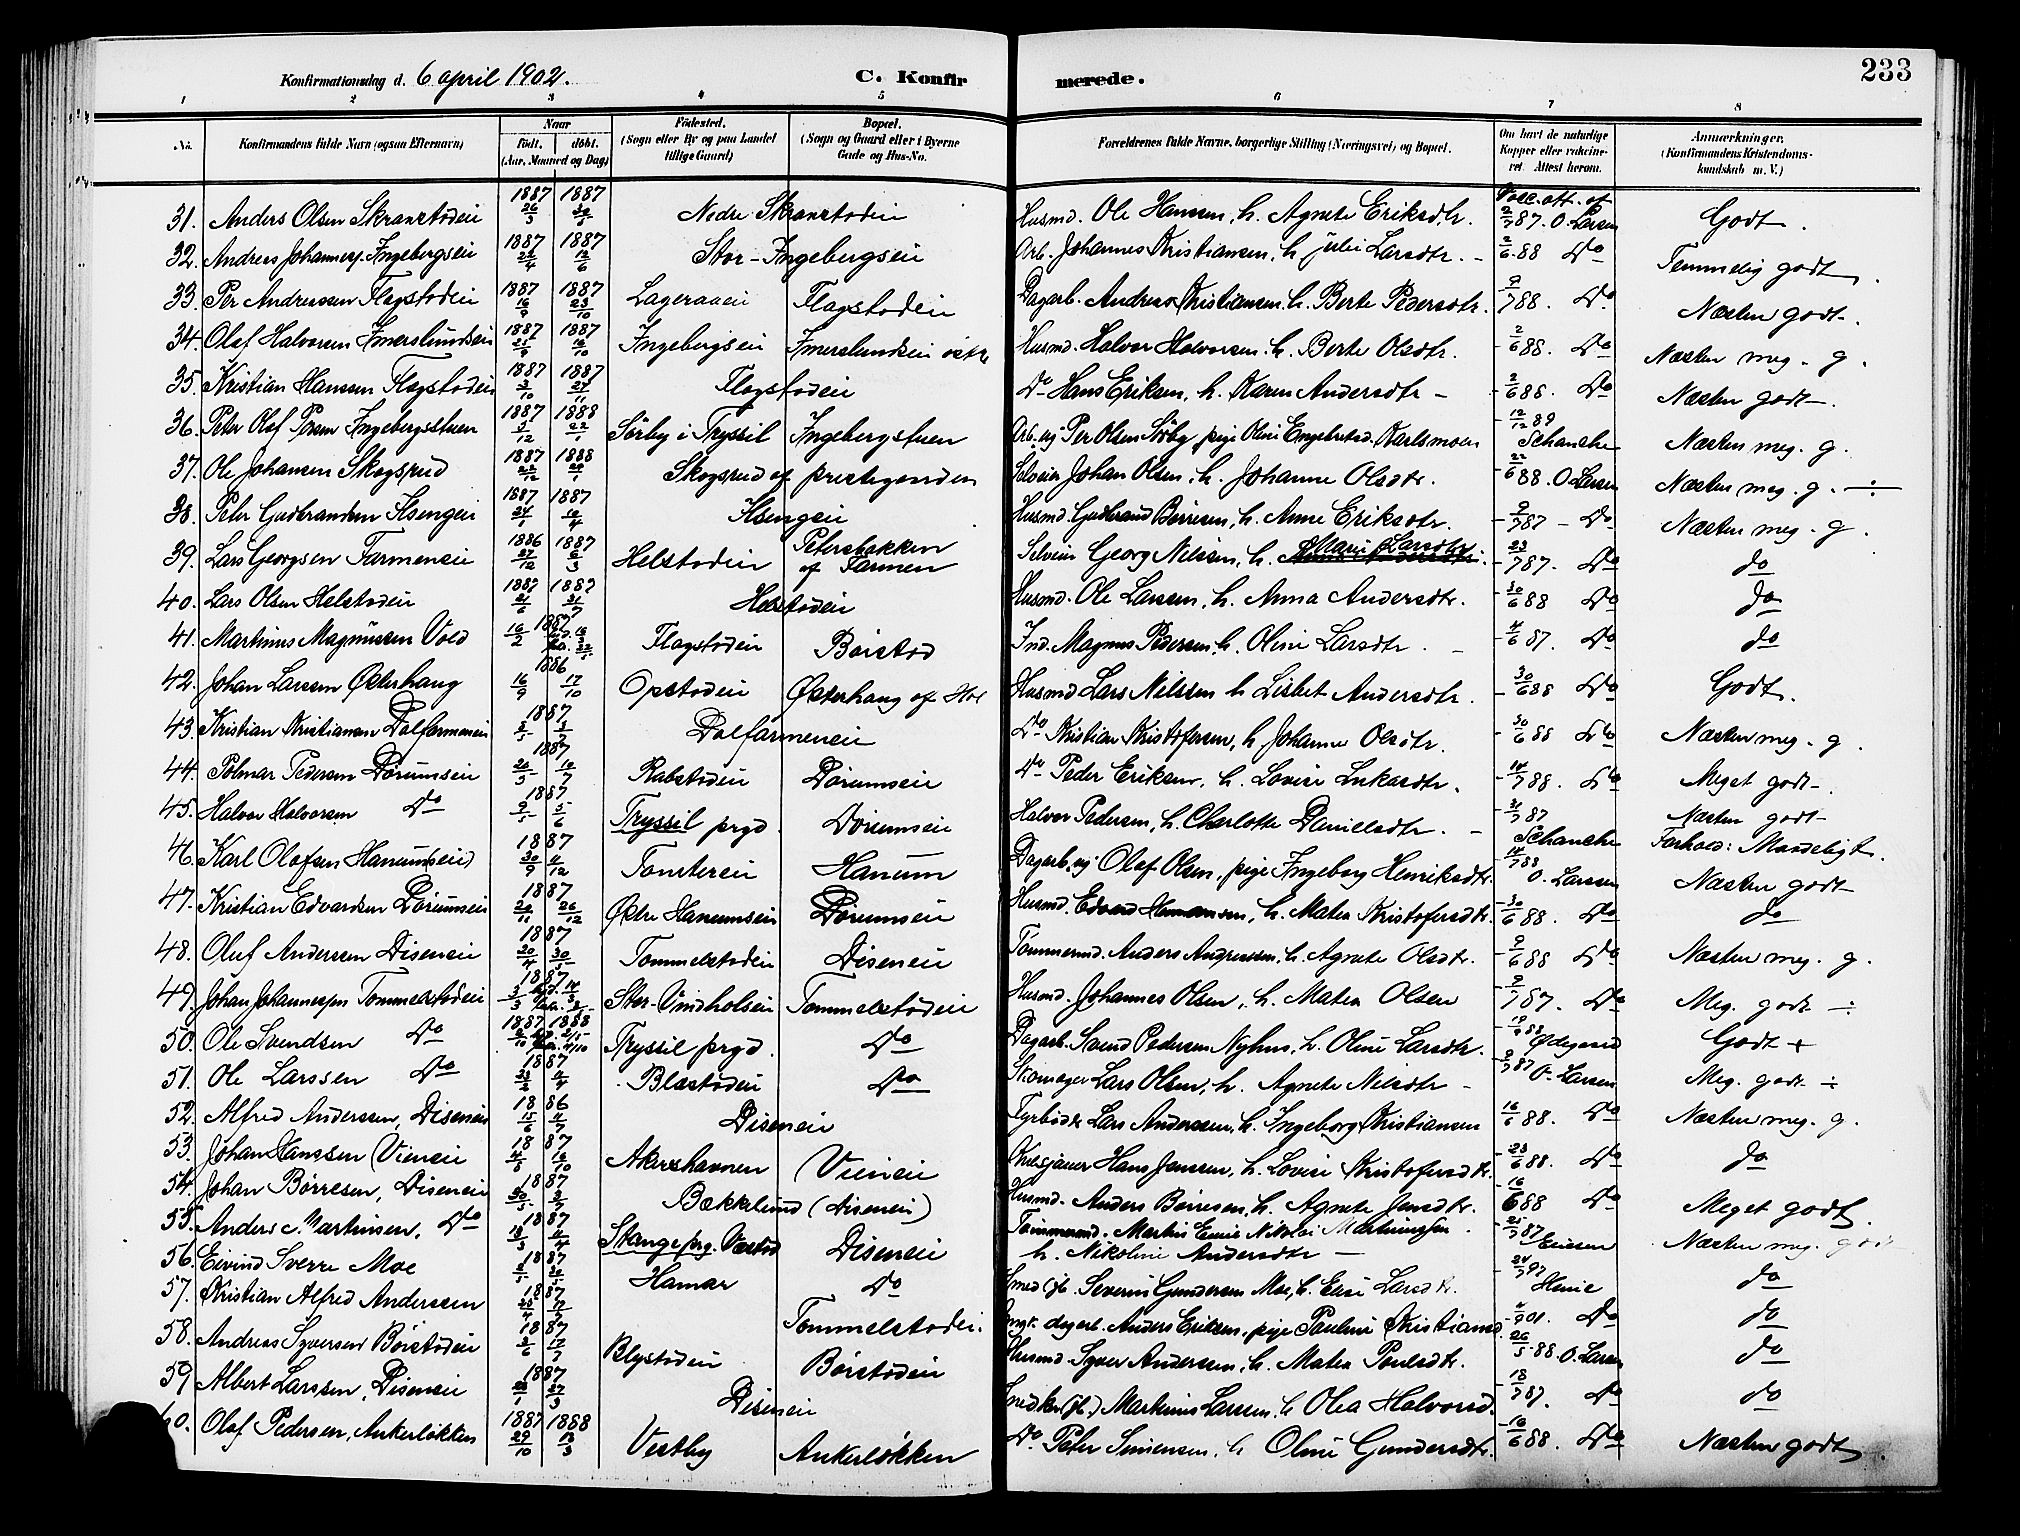 Konfirmationsdag d. 6 april 1902. C. Konfirmerede. 233
1 2 3 4 5 6 7 8
No. Konfirmandens fulde Navn (ogsaa Efternavn) Naar Födt. döbt. (Aar, Maaned og Dag) Födested. (Sogn eller By og paa Landet tillige Gaard) Bopæl. (Sogn og Gaard eller i Byerne Gade og Hus-No. Forældrenes fulde Navne, borgerlige Stilling (Næringsvei) og Bopæl. Om havt de naturlige Kopper eller vaccineret. Attest herom. Anmærkninger. (Konfirmandens Kristendomskundskab m. V.)
31. Anders Olsen Skranstadeie 1887 26/3 1887 30/5 Nedre Skranstadeie Husmd. Ole Hansen, h. Agnete Eriksdtr. Vacc. att. af 2/7 87. O. Larsen Godt.
32. Andreas Johanness. Ingebergseie 1887 22/4 1887 12/6 Stor-Ingebergseie Arb. Johannes Kristiansen, h. Julie Larsdtr. - 2/6 88 Do Temmelig godt.
33. Per Andreassen Flagstadeie 1887 16/9 1887 23/10 Lageraaeie Flagstadeie Dagarb. Andreas Kristiansen, h. Berte Pedersdtr. 9/7 88. Do Næsten godt.
34. Olaf Halvorsen Imerslundseie 1887 25/9 1887 16/10 Ingebergseie Imerslundseie østre Husmd. Halvor Halvorsen, h. Berte Olsdtr. - 2/6 88. Do Næsten meg. g.
35. Kristian Hanssen Flagstadeie 1887 3/10 1887 27/11 Flagstadeie Do Hans Eriksen, h. Karen Andersdtr - - 2/6 88. Do Næsten godt.
36. Peter Olaf Persen Ingebergstuen 1887 3/12 1888 22/1 Sörby i Tryssil Ingebergstuen Arb. ug. Per Olsen Söby, pige Oline Engebretsd. Karlsmoen - 12/12 89 Schanche Næsten meg. g.
37. Ole Johansen Skogsrud 1887 22/12 1888 29/1 Skogsrud af prestegaarden Selveier Johan Olsen, h. Johanne Olsdtr. - 22/6 88. O. Larsen Næsten meg. g. ÷
38. Peter Gudbrandsen Ilsengeie 1887 24/1 1887 10/4 Ilsengeie Husmd. Gudbrand Børresen, h. Anne Eriksdtr. - 9/7 87 - Do Næsten meg. g.
39. Lars Georgsen Farmeneie 1886 27/12 1887 6/3 Helstadeie Petersbakken af Farmen Selveier Georg Nilssen, h. Marie Larsdtr. - 23/7 87. Do do
40. Lars Olsen Helstadeie 1887 21/6 1887 31/7 Helstadeie Husmd. Ole Larssen, h. Anna Andersdtr. - 30/6 88 Do do
41. Martinus Magnussen Vold 1887 16/2 Flagstadeie Börstad Ind. Magnus Pedersen, h. Oline Larsdtr. - - 4/6 87. Do do
42. Johan Larssen Österhaug 1886 16/9 17/10 Opstadeie Österhaug af Hol Husmd Lars Nilssen h Lisbet Andersdtr. - 30/6 88 Do Godt.
43. Kristian Kristiansen Dalfarmeneie 1887 Dalfarmeneie Do Kristian Kristofersen, h. Johanne Olsdtr. - 30/6 88 Do Næsten meg. g.
44. Polmar Pedersen Dörumseie 1887 20/5 10/7 Rabstadeie Dörumseie Do Peder Eriksen, h. Lovise Lukasdtr. - 14/7 88. Do Meget godt.
45. Halvor Halvorsen Do 1887 9/5 5/6 Tryssil prgd. Dörumseie Halvor Pedersen, h. Charlotte Danielsdtr. - - 31/7 87 Schanche Næsten godt - Forhold: Maadeligt.
46. Karl Olafsen Hanumseie 1887 30/9 4/12 Tomtereie Hanum Dagarb. ug. Olaf Olsen, pige Ingeborg Henriksdtr. - 14/7 88 O. Larssen Næsten godt
47. Kristian Edvardsen Dörumseie 1887 20/11 26/12 Östre Hanumseie Dörumseie Husmd. Edvard Hermansen, h. Matea Kristofersdtr. - 30/6 88. Do do
48. Oluf Anderssen Diseneie 1887 20/4 30/5 Tommelstadeie Diseneie Tömmermd. Anders Andreassen, h. Agnete Olsdtr. - 9/6 88 Do Næsten meg. g.
49. Johan Johannessen Tommelstadeie 1887 3/3 Stor-Vindholseie Tommelstadeie Husmd. Johannes Olsen, h. Matea Olsen - 2/7 87. Do Meg. godt ÷
50. Ole Svendsen Do 1887 1888 Tryssil prgd. Do Dagarb. Svend Pedersen Nyhus, h. Oline Larsdtr. Ödegaard Godt +
51. Ole Larssen Do 1887 23/2 11/4 Blæstadeie Do Skomager Lars Olsen, h. Agnete Nilsdtr - - 9/7 87 O. Larsen Meg. godt ÷
52. Alfred Anderssen, Diseneie 1886 15/6 4/7 Diseneie Fyrböder Lars Anderssen, h. Ingeborg Kristiansen - 16/6 88. Do Næsten meg. g.
53. Johan Hanssen Vieneie 1887 4/8 16/10 Akershavnen Vieneie Hans Jenssen, h. Lovise Kristofersdtr. - 23/6 88. Do do
54. Johan Börresen, Diseneie 1887 Bækkelund (Diseneie) Husmd. Anders Börresen, h. Agnete Jensdtr. - 16/6 88 Do Meget godt.
55. Anders Martinsen, Do 1887 13/3 11/4 Stange prg. Vaastad Diseneie Tömmermd. Martin Emil Nikolai Martiniussen h. Nikoline Andersdtr - - 25/7 87 Ericsen Næsten meg. godt
56. Eivind Sverre Moe 1887 Hamar Do Smed (fl. Severin Gundersen Moe, h. Elise Larsdtr. - 20/7 97 Henie do
57. Kristian Alfred Anderssen 1887 Tommelstadeie. Ungk. dagarb. Anders Eriksen, pige Pauline Kristiansd. - 4/9 01. Do do
58. Andreas Syversen Börstadeie 1887 2/6 17/7 Blystadeie Börstadeie Husmd. Syver Anderssen, h. Matea Paulsdtr. - 26/5 88. O. Larsen do
59. Albert Larssen, Diseneie 1887 23/1 27/3 Diseneie Snedker (fl.) Martinius Larssen, h Olea Halvorsd. - 18/7 87. Do do
60. Olaf Pedersen, Ankerlökken 1887 29/10 1888 18/3 Vestby Ankerlökken Do Peter Simensen, h Oline Gundersdtr. - 16/6 88. Do Næsten godt.